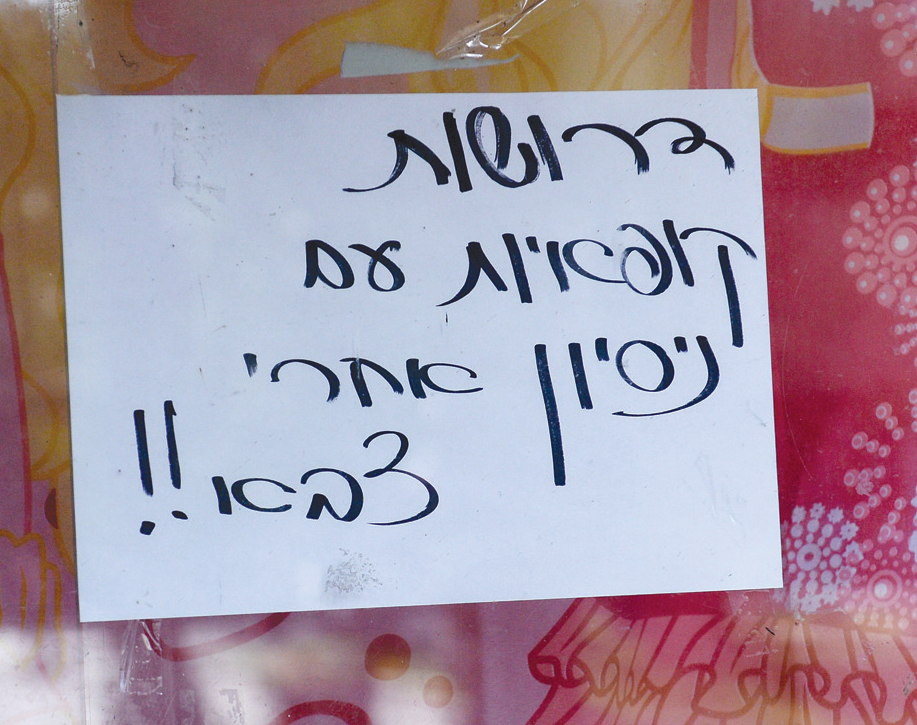 דרושות
קופאיות עם
ניסיון אחרי
צבא!!